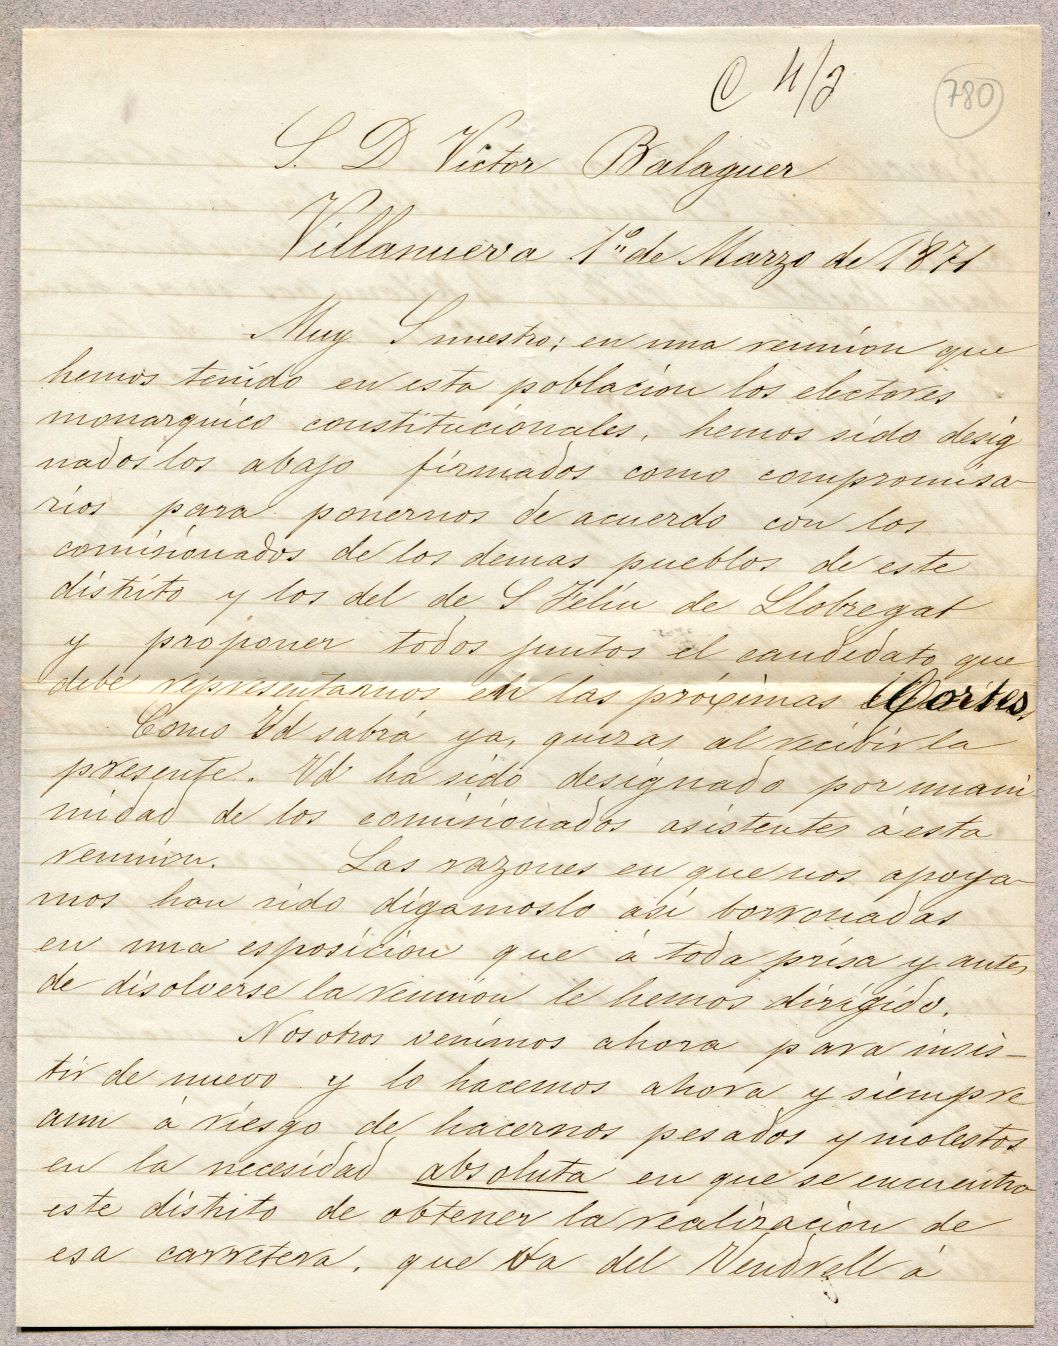 C 4/2
780
S. D Victor Balaguer
Villanueva 1º de Marzo de 1871
Muy S nuestro; en una reunion que
hemos tenido en esta poblacion los electores
monarquico constitucionales, hemos sido desig
nados los abajo firmados como compromisa-
rios para ponernos de acuerdo con los
comisionados de los demas pueblos de este
distrito y los del de S Feliu de Llobregat
y proponer todos juntos el candidato que
debe representarnos en las próximas Cortes.
Como Vd sabrá ya, quizas al recibir la
presente. Vd ha sido designado por unani
midad de los comisionados asistentes á esta
reunion. Las razones en que nos apoya-
mos han sido digamoslo asi borronadas
en una esposicion que á toda prisa y antes
de disolverse la reunion le hemos dirigido.
Nosotros venimos ahora para insis-
tir de nuevo y lo hacemos ahora y siempre
aun á riesgo de hacernos pesados y molestos
en la necesidad absoluta en que se encuentra
este distrito de obtener la realizacion de
esa carretera, que va del Vendrell á